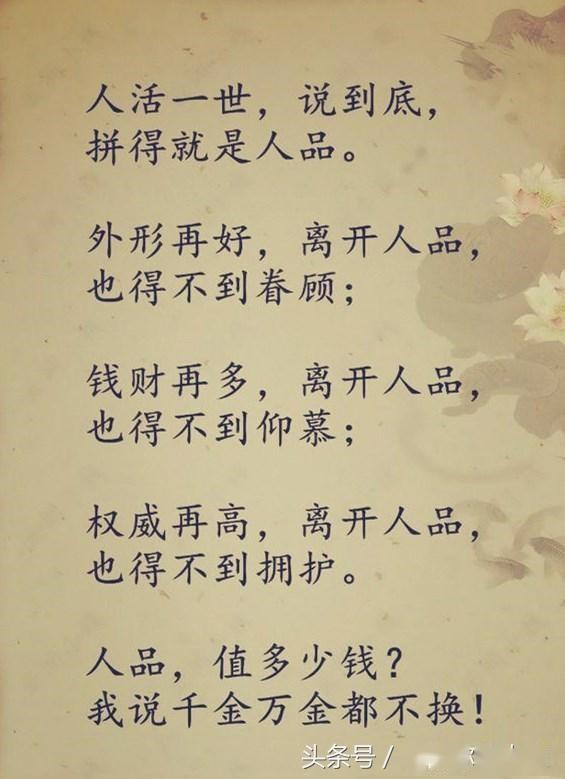 人活一世，说到底，
拼得就是人品。
外形再好，离开人品，
也得不到眷顾；
钱财再多，离开人品，
也得不到仰慕；
权威再高，离开人品，
也得不到拥护。
人品，值多少钱？
我说千金万金都不换！
头条号 /